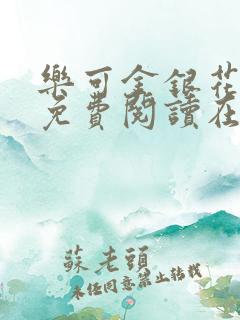 樂可金銀花
免費閱讀在
蘇老頭
未經同意禁止轉載